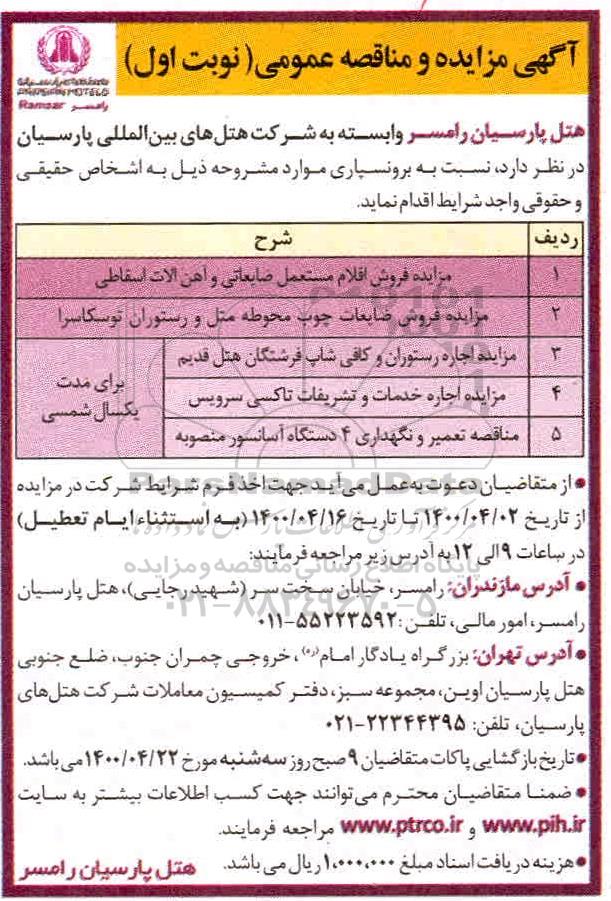 آگهی مزایده و مناقصه عمومی( نوبت اول)
PARSIAN HOTELS
Ramsar رامسر
هتل پارسیان رامسر وابسته به شرکت هتل‌های بین‌المللی پارسیان
در نظر دارد، نسبت به برونسپاری موارد مشروحه ذیل به اشخاص حقیقی
و حقوقی واجد شرایط اقدام نماید.
ردیف شرح
۱ مزایده فروش اقلام مستعمل ضایعاتی و آهن آلات اسقاطی
۲ مزایده فروش ضایعات چوب محوطه متل و رستوران توسکاسرا
۳ مزایده اجاره رستوران و کافی شاپ فرشتگان هتل قدیم
۴ مزایده اجاره خدمات و تشریفات تاکسی سرویس
برای مدت
یکسال شمسی
۵ مناقصه تعمیر و نگهداری ۴ دستگاه آسانسور منصوبه
• از متقاضیان دعوت به عمل می‌آید جهت اخذ فرم شرایط شرکت در مزایده
از تاریخ ۱۴۰۰/۰۴/۰۲ تا تاریخ ۱۴۰۰/۰۴/۱۶ (به استثناء ایام تعطیل)
در ساعات ۹ الی ۱۲ به آدرس زیر مراجعه فرمایند:
ParsNamadData
پایگاه اطلاع رسانی مناقصه و مزایده
۰۲۱-۸۸۳۴۹۶۷۰-۵
• آدرس مازندران: رامسر، خیابان سخت سر (شهید رجایی)، هتل پارسیان
رامسر، امور مالی، تلفن: ۵۵۲۲۳۵۹۲-۰۱۱
• آدرس تهران: بزرگراه یادگار امام(ره)، خروجی چمران جنوب، ضلع جنوبی
هتل پارسیان اوین، مجموعه سبز، دفتر کمیسیون معاملات شرکت هتل‌های
پارسیان، تلفن: ۲۲۳۴۴۳۹۵-۰۲۱
• تاریخ بازگشایی پاکات متقاضیان ۹ صبح روز سه‌شنبه مورخ ۱۴۰۰/۰۴/۲۲ می باشد.
• ضمنا متقاضیان محترم می‌توانند جهت کسب اطلاعات بیشتر به سایت
www.pih.ir و www.ptrco.ir مراجعه فرمایند.
• هزینه دریافت اسناد مبلغ ۱,۰۰۰,۰۰۰ ریال می باشد.
هتل پارسیان رامسر